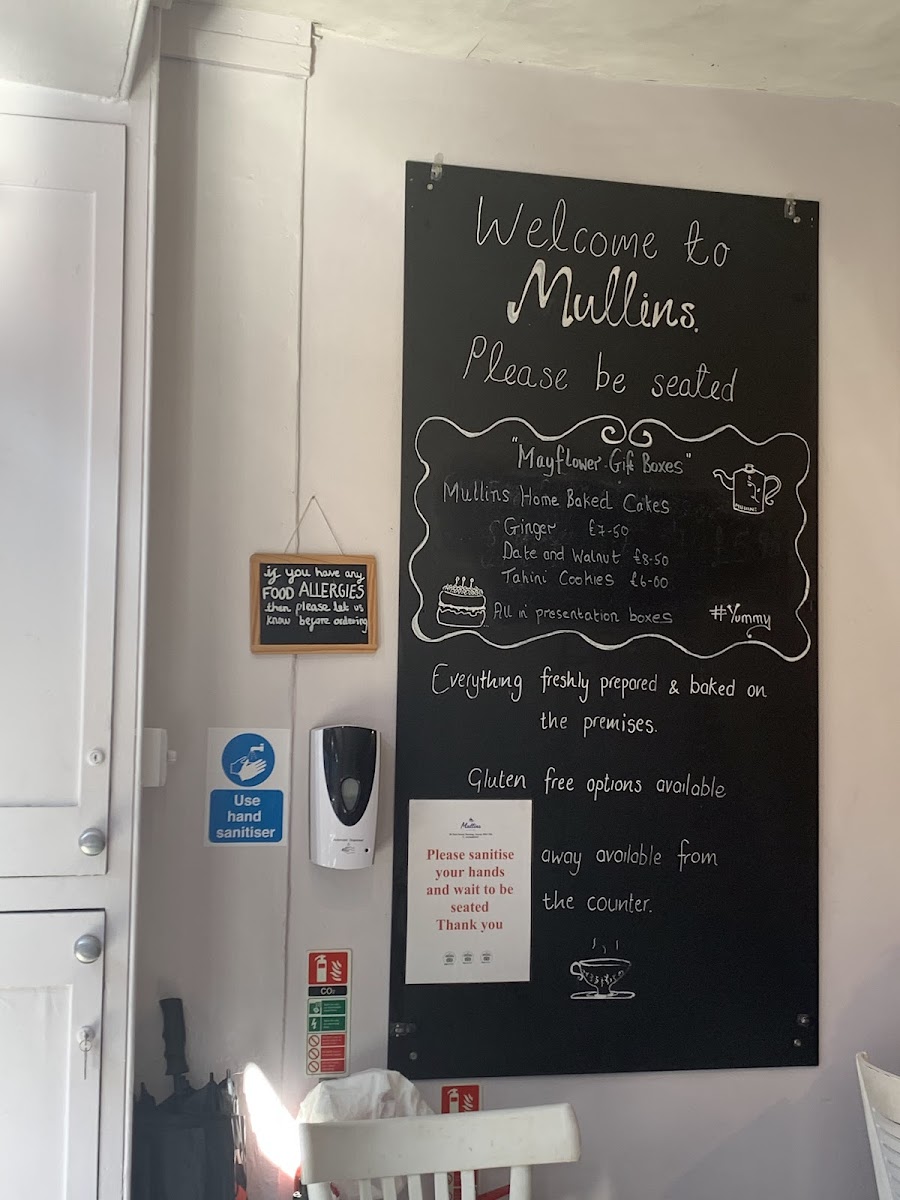 Welcome to
Mullins.
Please be seated
"Mayflower Gift Boxes"
Mullins Home Baked Cakes
Ginger £7-50
Date and Walnut £8-50
Tahini Cookies £6-00
All in presentation boxes
#Yummy
Everything freshly prepared & baked on
the premises.
Gluten free options available
away available from
the counter.
if you have any
FOOD ALLERGIES
then please let us
know before ordering
Use
hand
sanitiser
Mullins
Please sanitise
your hands
and wait to be
seated
Thank you
CO2